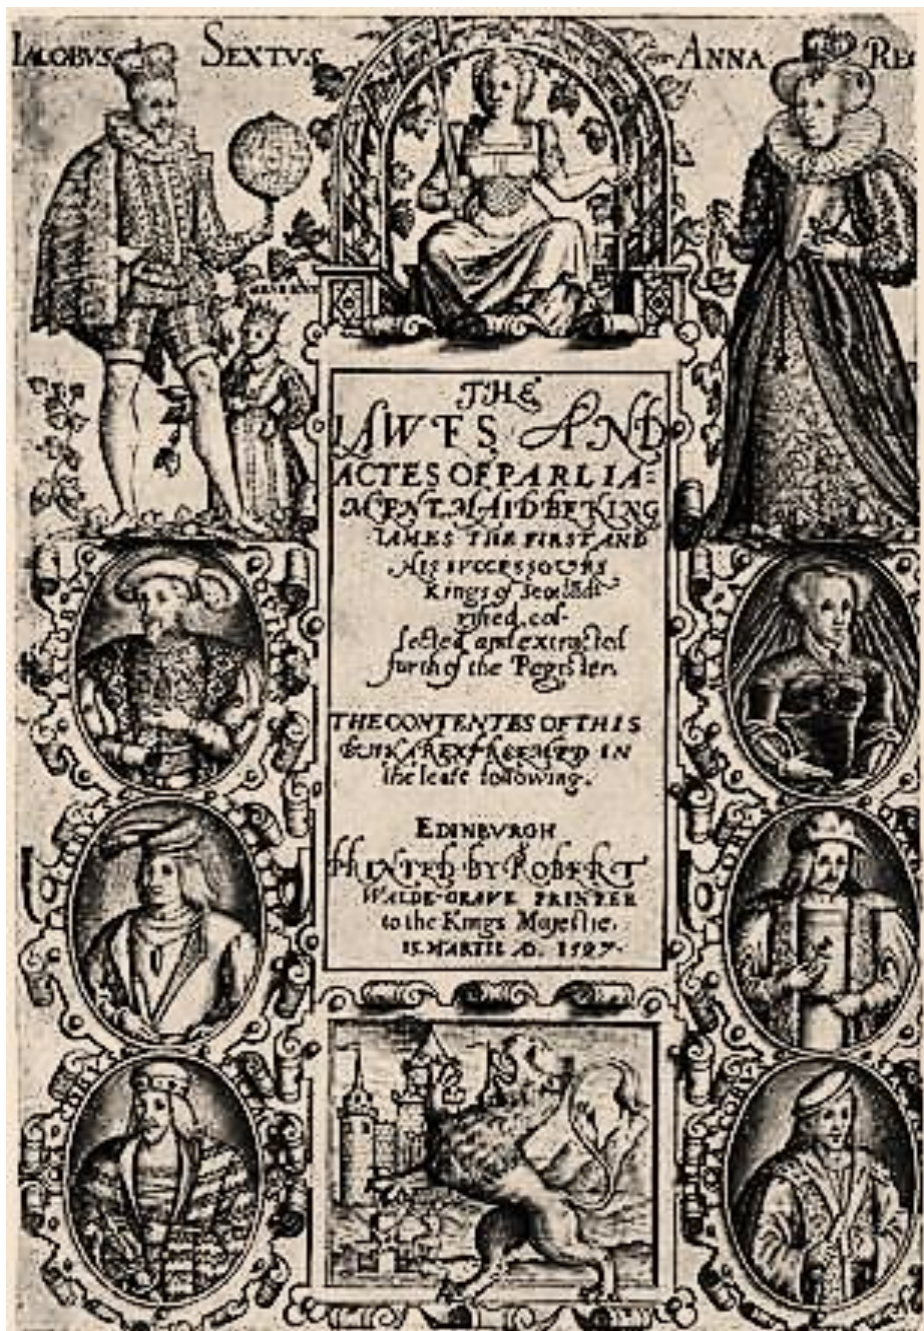 IACOBVS SEXTVS
ANNA RE
THE
LAWES AND
ACTES OF PARLIA=
MENT, MAID BE KING
IAMES THE FIRST AND
HIS SVCCESSOVRS
Kings of Scotlād:
visied, col-
lected and extracted
furth of the Register.
THE CONTENTES OF THIS
BVIK AR EXPREEMED IN
the leafe following.
EDINBVRGH
PRINTED BY ROBERT
WALDE-GRAVE PRINTER
to the Kings Majestie.
15. MARTII A.D. 1597.